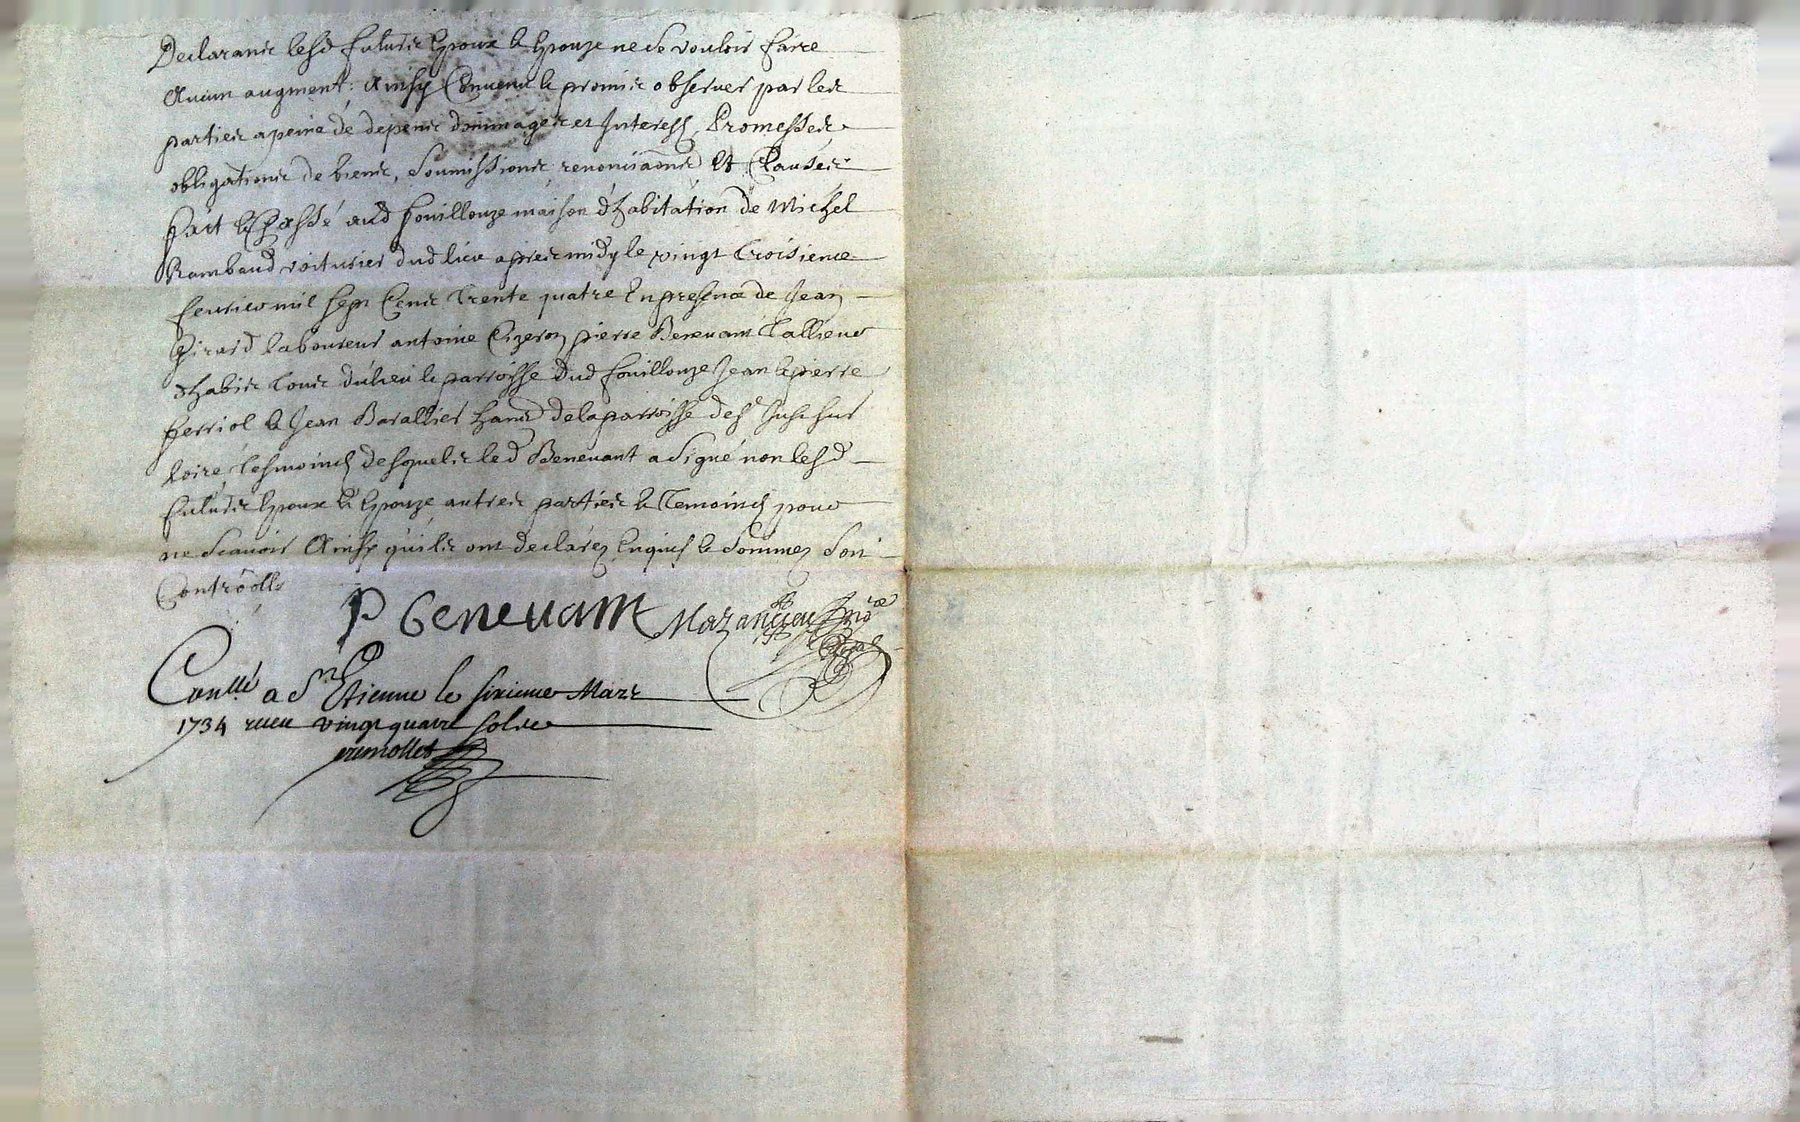 Declarants lesd futurs Epoux & Epouze ne se vouloir faire
Aucun augment: Ainsy Convenu & promis observer par les
parties a peine de depens dommages et Interests, Promesses
obligations de biens, soumissions renonciaōns Et Clauses
fait & Passé aud fouillouze maison d'habitation de Michel
Rambaud voiturier dud lieu apres midy le vingt Troisieme
fevrier mil sept Cents Trente quatre En presence de Jean
Girard laboureur antoine Cizeron pierre Benevant Tallieur
d'habits Tous dud lieu & parroisse dud fouillouze Jean & pierre
ferriol & Jean Barallier hants de la parroisse de st Just sur
loire, Tesmoins desquels led Benevant a signé non lesd
futurs Epoux & Epouze autres parties & Temoins pour
ne scavoir Ainsy qu'ils ont declarez Enquis & sommez soit
Controollé
P benevant Mazancieu No.re
Conllé a St Etienne le sixieme Mars
1734 receu vingt quatre sols